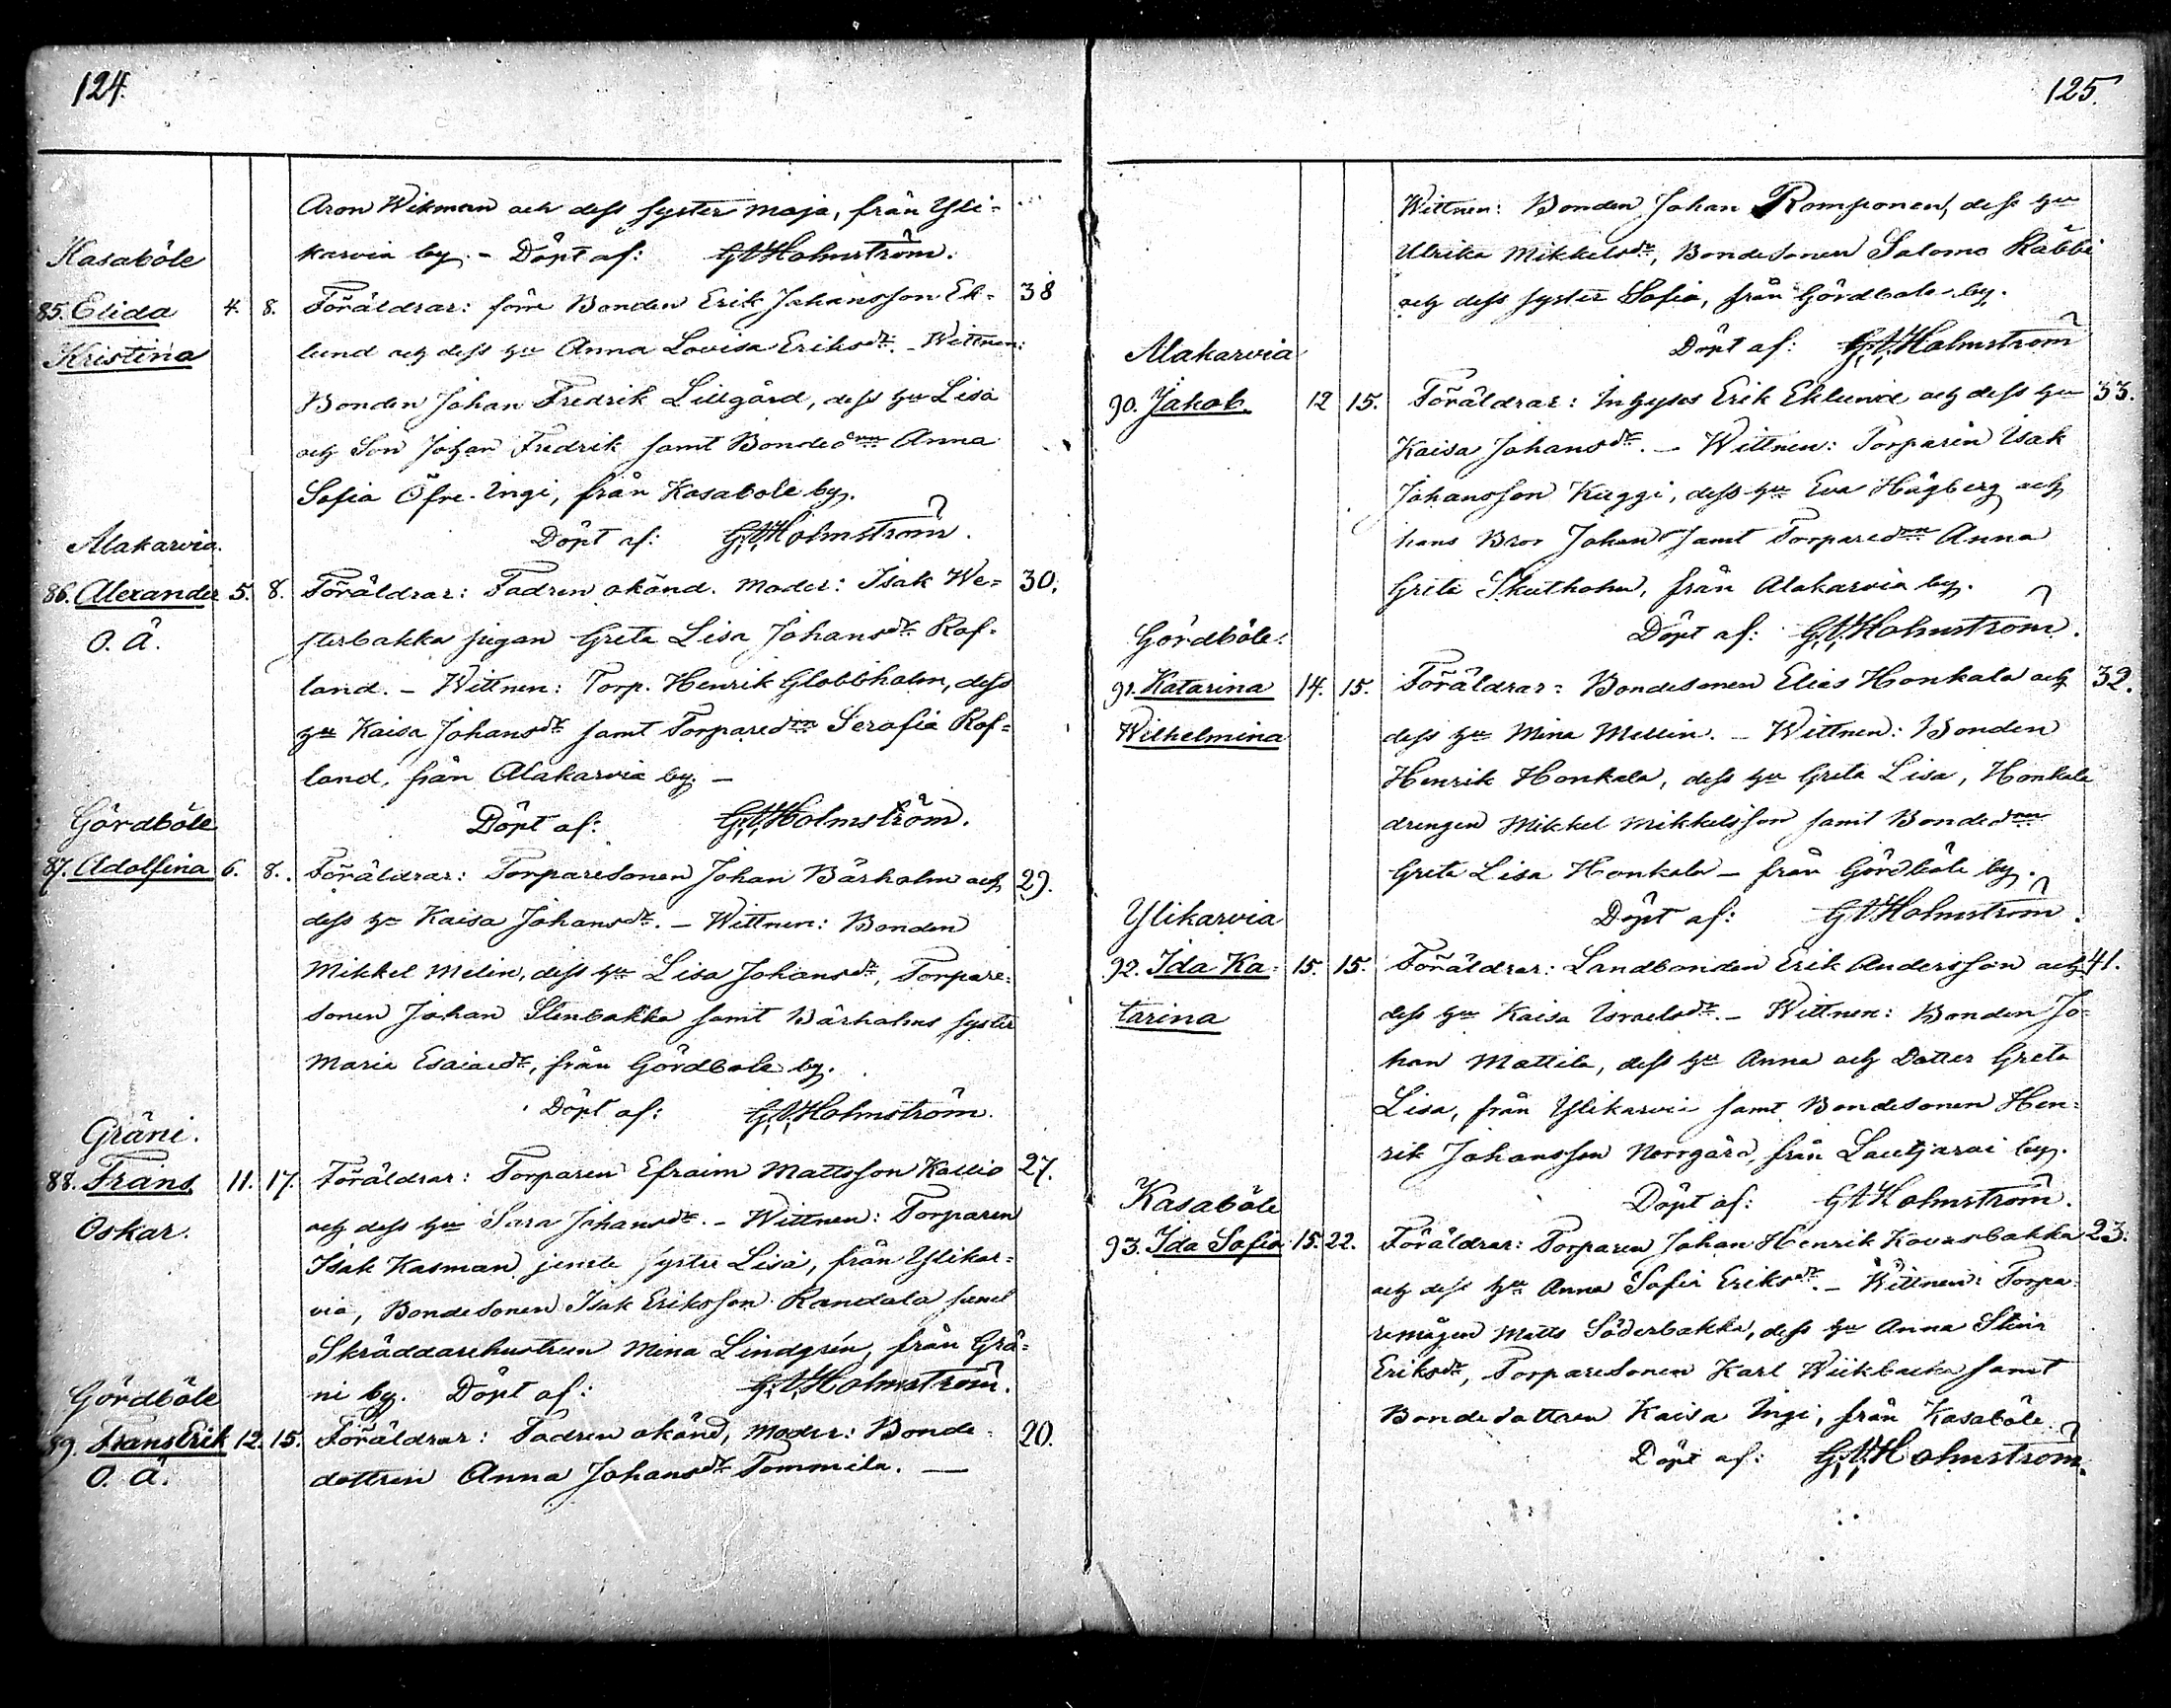 124.
Aron Wikman och dess syster Maja, från Yli-
karvia by. - Döpt af: G.A. Holmström.
Kasaböle
85. Elida 4. 8. Föräldrar: förre Bonden Erik Johansson Ek- 38
Kristina lund och dess hu Anna Lovisa Eriksdr. - Wittnen:
Bonden Johan Fredrik Lillgård, dess hu Lisa
och Son Johan Fredrik samt Bonded:nn Anna
Sofia Öfre-Ingi, från Kasaböle by.
Döpt af: G.A. Holmström.
Alakarvia.
86. Alexander 5. 8. Föräldrar: Fadren okänd. Moder: Isak We- 30.
O. Ä. sterbakka pigan Greta Lisa Johansdr Rof-
land. - Wittnen: Torp. Henrik Globbholm, dess
hu Kaisa Johansdr samt Torpared:nn Serafia Rof-
land, från Alakarvia by. -
Döpt af: G.A. Holmström.
Gördböle
87. Adolfina 6. 8. Föräldrar: Torparesonen Johan Bärholm och 29.
dess hu Kaisa Johansdr. - Wittnen: Bonden
Mikkel Melin, dess hu Lisa Johansdr, Torpare-
sonen Johan Stenbakka samt Bärholms syster
Maria Esaiaedr, från Gördböle by.
Döpt af: G.A. Holmström.
Gräni.
88. Frans 11. 17. Föräldrar: Torparen Efraim Mattsson Kallio 27.
Oskar. och dess hu Sara Johansdr. - Wittnen: Torparen
Isak Kasman jemte syster Lisa, från Ylikar-
via, Bondesonen Isak Eriksson Randala samt
Skräddarehustrun Mina Lindgrén, från Grä-
ni by. Döpt af: G.A. Holmström.
Gördböle
89. Frans Erik 12. 15. Föräldrar: Fadren okänd, Moder: Bonde- 20.
O. Ä. dottren Anna Johansdr Tommila. -
125.
Wittnen: Bonden Johan Romponen, dess hu
Ulrika Mikkelsdr, Bondesonen Salomo Rabbi
och dess syster Sofia, från Gördböle by.
Döpt af: G.A. Holmström
Alakarvia
90. Jakob 12 15. Föräldrar: Inhyses Erik Eklund och dess hu 33.
Kaisa Johansdr. - Wittnen: Torparen Isak
Johansson Kuggi, dess hu Eva Hägberg och
hans Bror Johan samt Torpared:nn Anna
Greta Skutholm, från Alakarvia by.
Döpt af: G.A. Holmström.
Gördböle.
91. Katarina 14. 15. Föräldrar: Bondesonen Elias Honkala och 32.
Wilhelmina dess hu Mina Mellin. - Wittnen: Bonden
Henrik Honkala, dess hu Greta Lisa, Honkala
drengen Mikkel Mikkelsson samt Bonded:nn
Greta Lisa Honkala - från Gördböle by.
Döpt af: G.A. Holmström.
Ylikarvia
92. Ida Ka- 15. 15. Föräldrar: Landbonden Erik Andersson och 41.
tarina dess hu Kaisa Israelsdr. - Wittnen: Bonden Jo-
han Mattila, dess hu Anna och Dotter Greta
Lisa, från Ylikarvia samt Bondesonen Hen-
rik Johansson Norrgård, från Lautjärvi by.
Döpt af: G.A. Holmström.
Kasaböle
93. Ida Sofia 15. 22. Föräldrar: Torparen Johan Henrik 23.
och dess hu Anna Sofia Eriksdr. - Wittnen: Torpa-
remågen Matts Söderbakka, dess hu Anna Stina
Eriksdr, Torparesonen Karl samt
Bondedottren Kaisa Ingi, från Kasaböle.
Döpt af: G.A. Holmström.